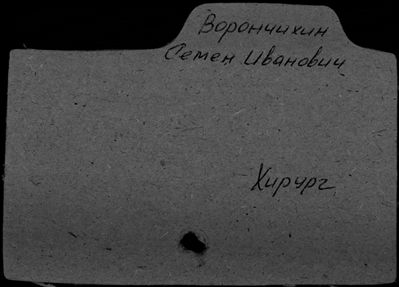 Ворончихин
Семен Иванович
Хирург